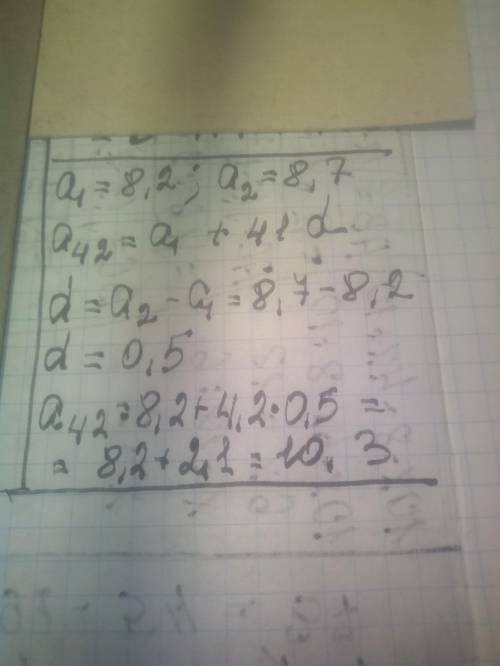 a₁ = 8,2; a₂ = 8,7
a₄₂ = a₁ + 41 d
d = a₂ - a₁ = 8,7 - 8,2
d = 0,5
a₄₂ = 8,2 + 4,2 · 0,5 =
= 8,2 + 2,1 = 10,3